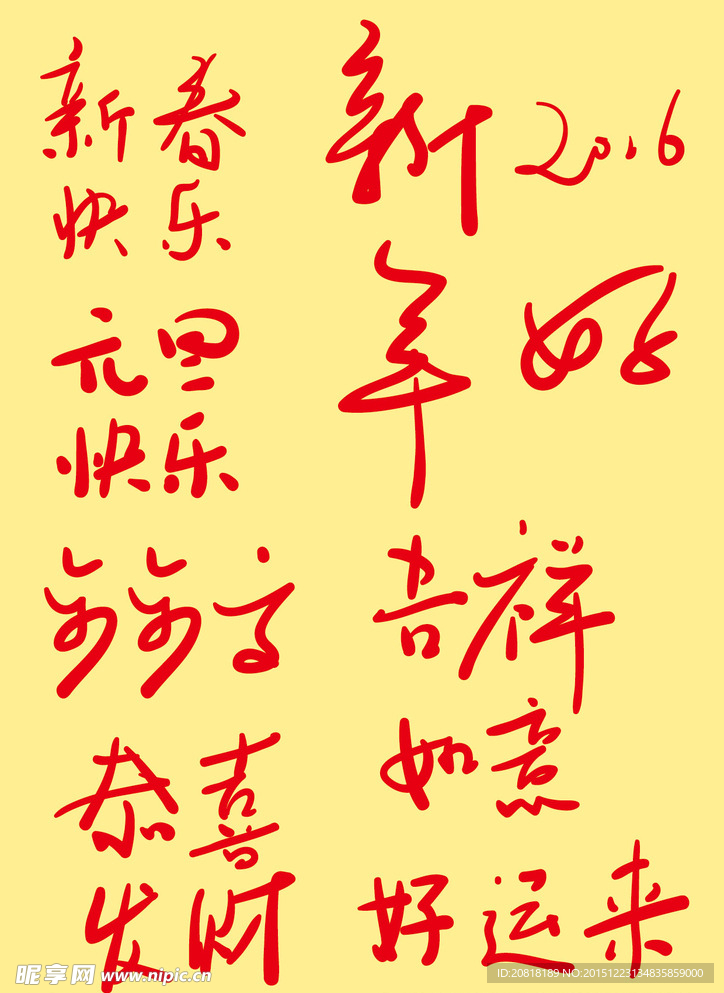 新春
快乐
元旦
快乐
步步高
恭喜
发财
新 2016
年好
吉祥
如意
好运来
昵享网 www.nipic.cn
ID:20818189 NO:20151223134835859000